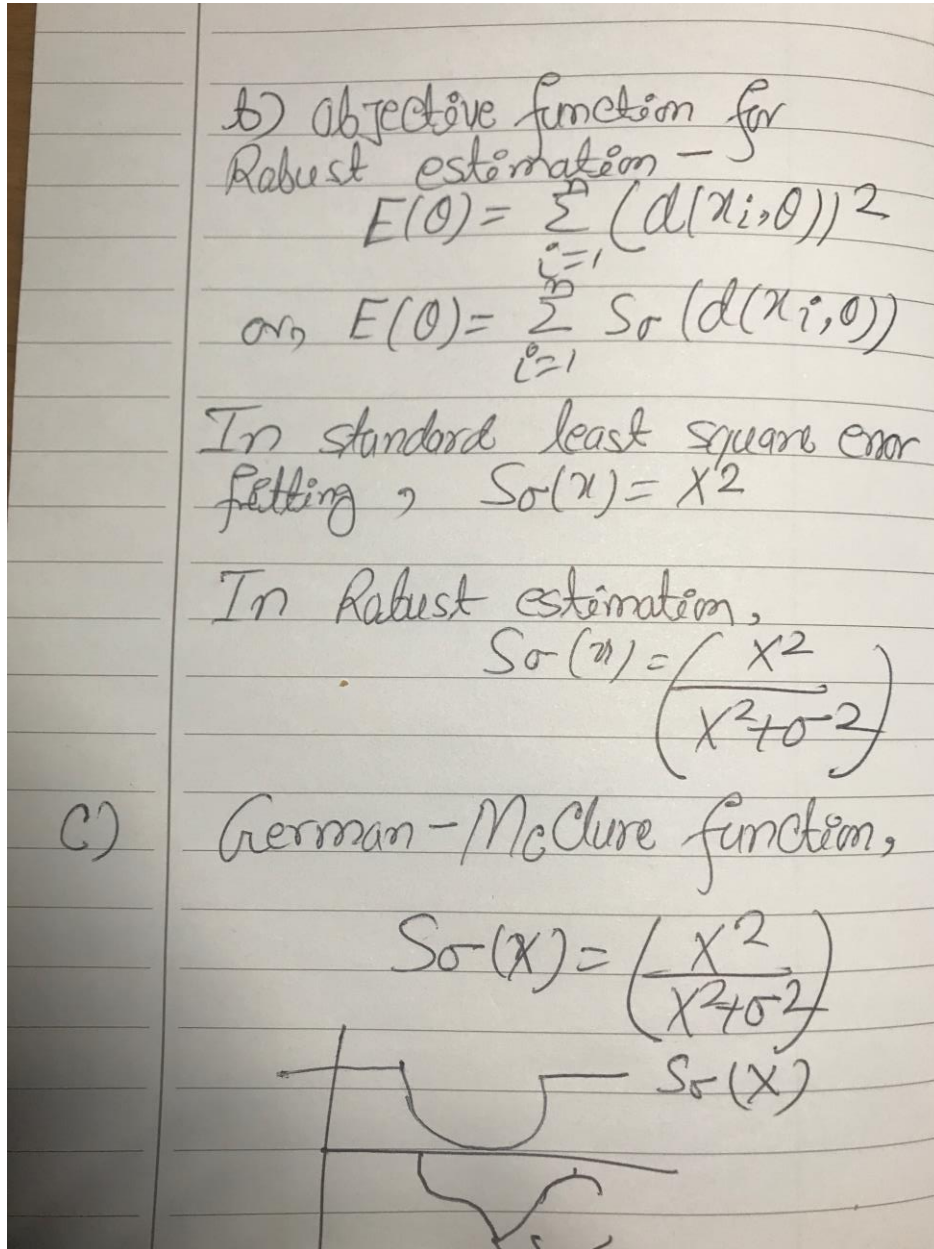 b) objective function for
Rabust estimation -
E(θ) = Σ_{i=1}^{n} (d(xi,θ))2
or, E(θ) = Σ_{i=1}^{n} Sσ (d(xi,θ))
In standard least square error
fitting, Sσ(x) = X2
In Rabust estimation,
Sσ(x) = (X2 / X2+σ2)
C) German-McClure function,
Sσ(X) = (X2 / X2+σ2)
Sσ(X)